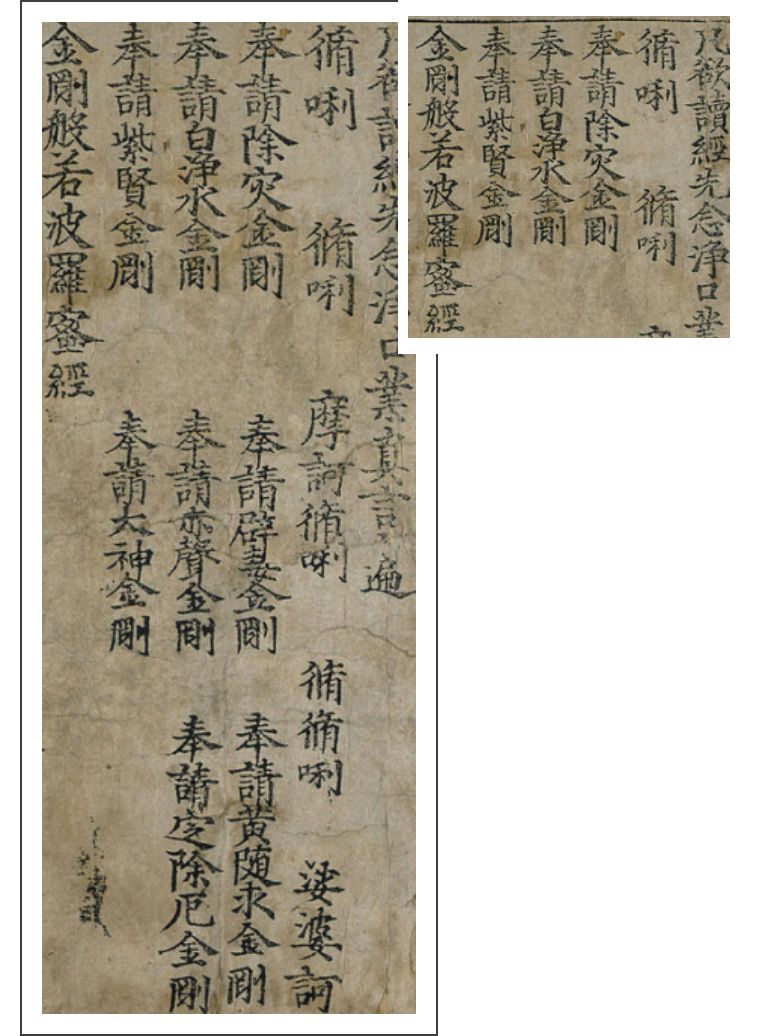 凡欲讀經先念淨口業真言遍
脩唎 脩唎 摩訶脩唎 脩脩唎 娑婆訶
奉請除灾金剛 奉請辟毒金剛 奉請黄随求金剛
奉請白淨水金剛 奉請赤聲金剛 奉請定除厄金剛
奉請紫賢金剛 奉請大神金剛
金剛般若波羅蜜經
凡欲讀經先念淨口業
脩唎 脩唎
奉請除灾金剛
奉請白淨水金剛
奉請紫賢金剛
金剛般若波羅蜜經